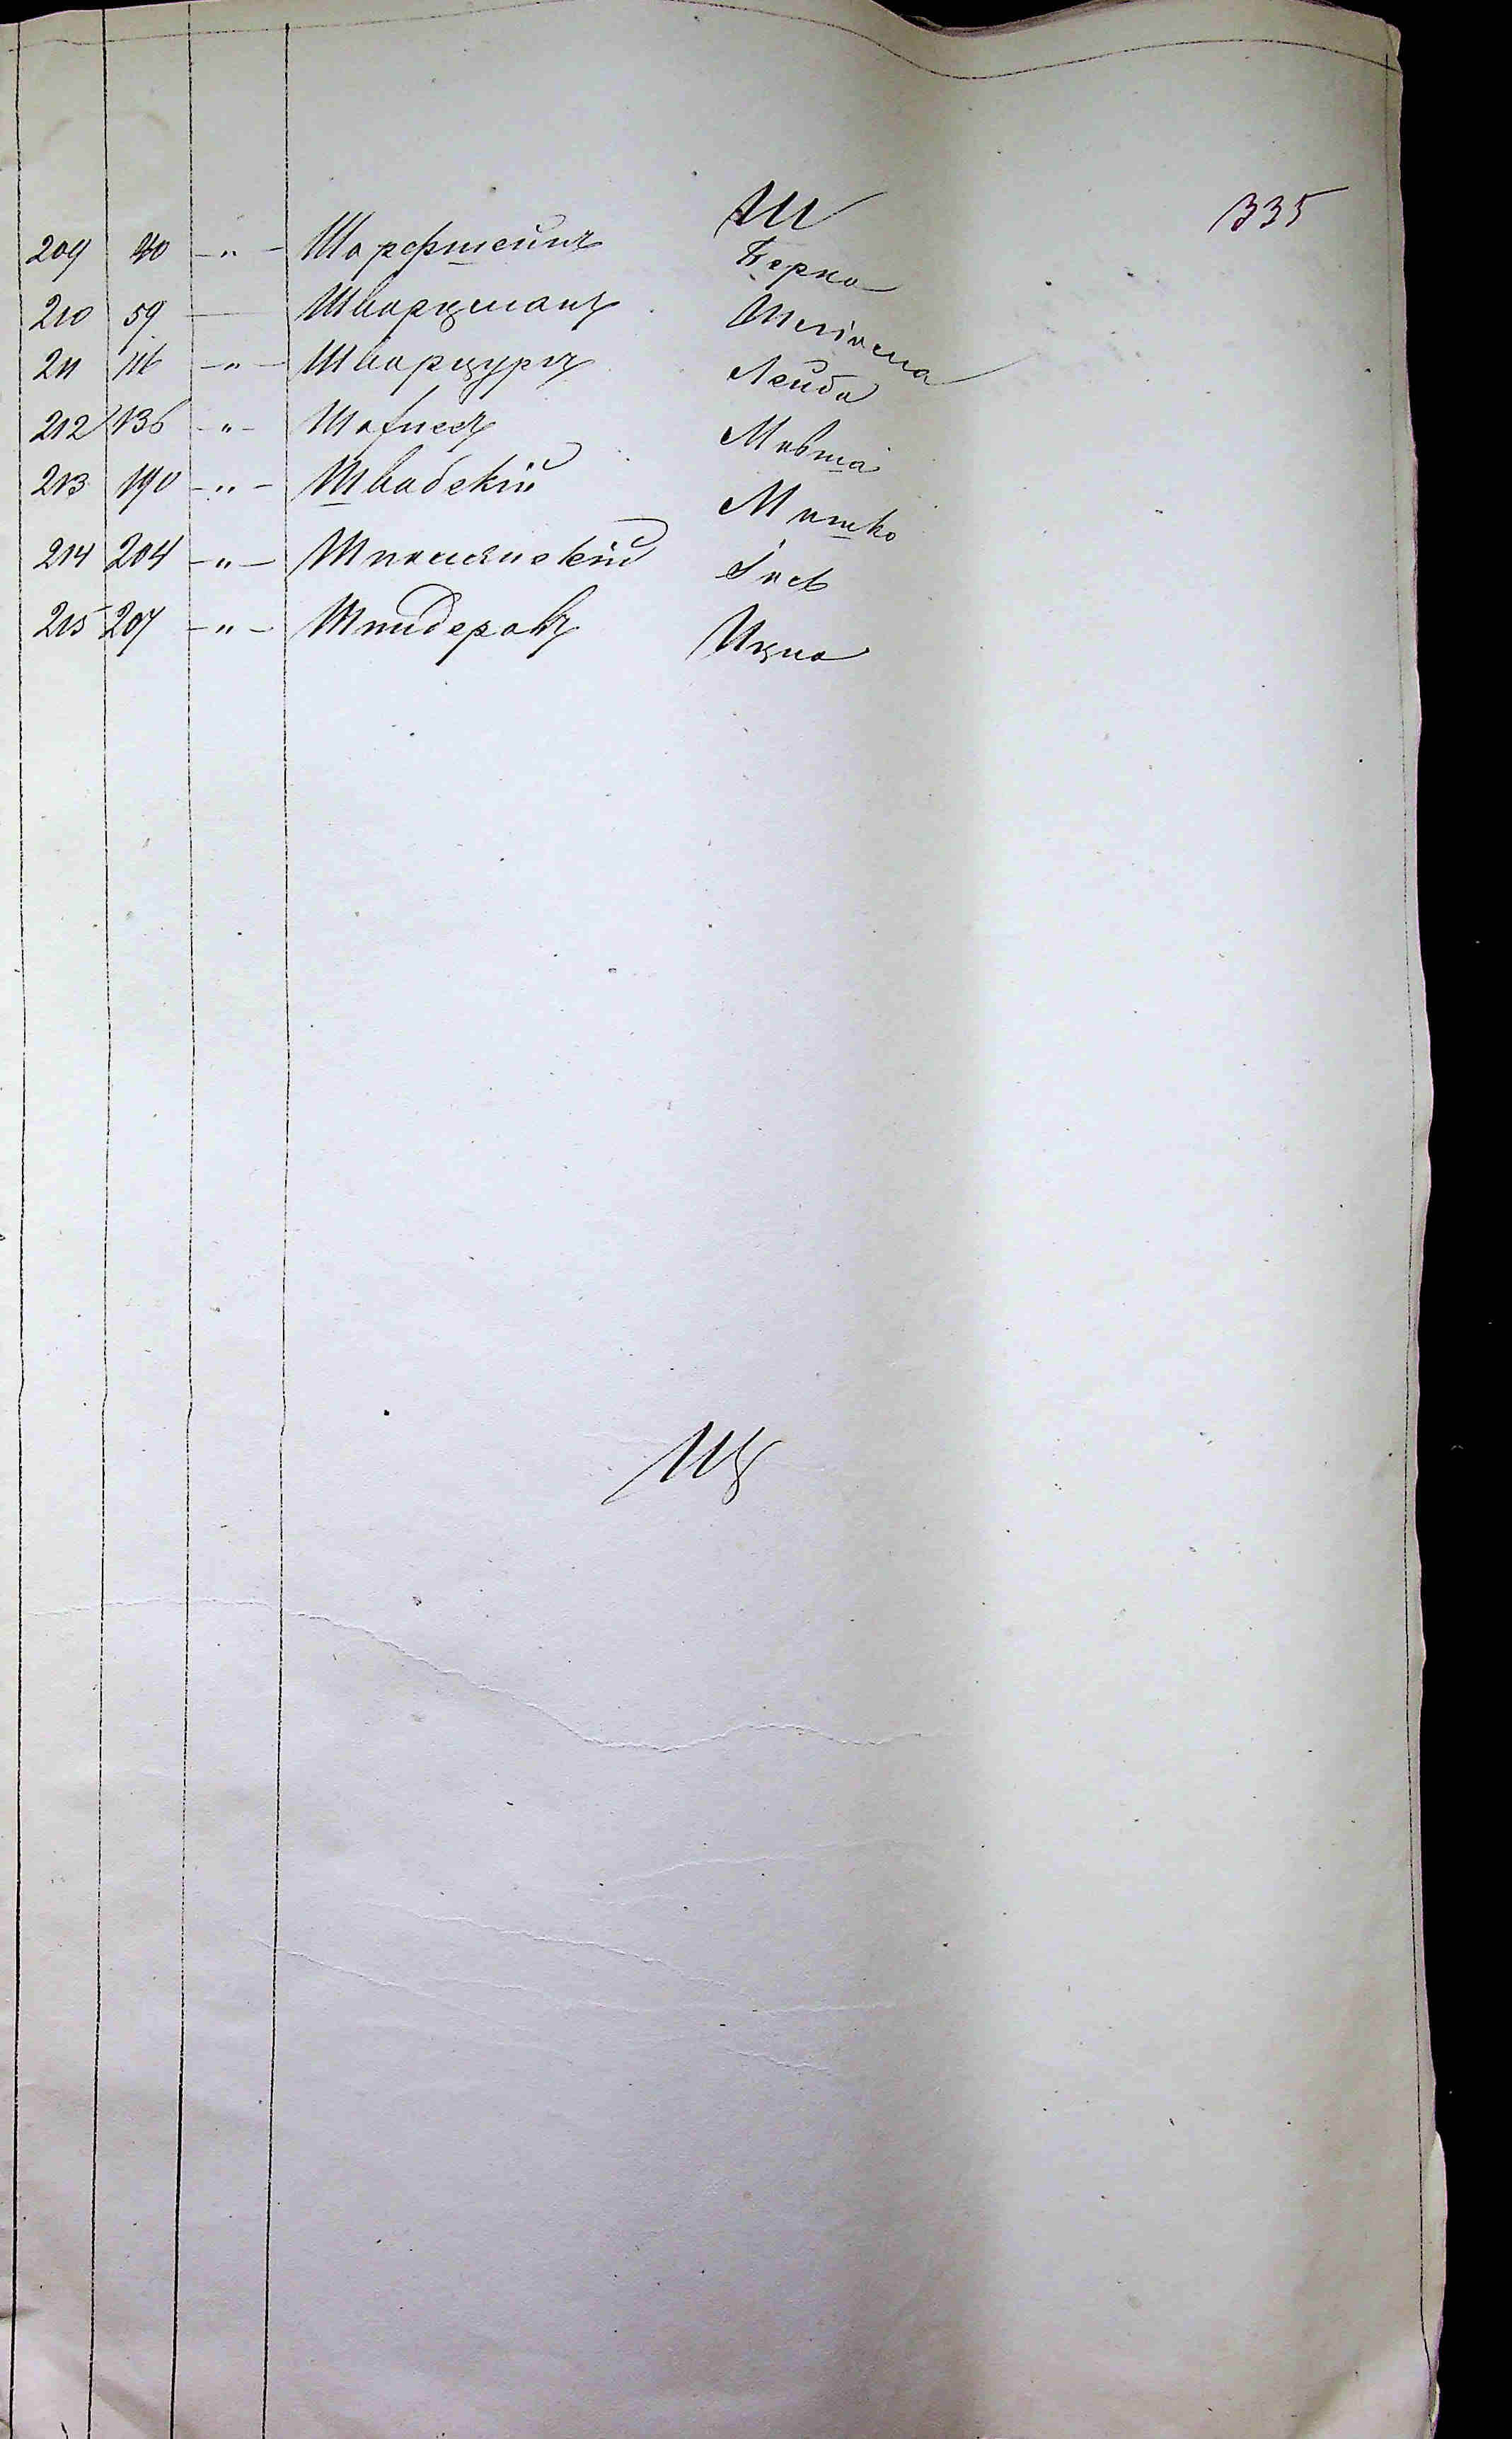 Ш 335
209 40 -"- Шарфштейнъ Берко
210 59 — Шварцманъ Шліома
211 116 -"- Шварцургъ Лейба
212 136 -"- Мовша
213 190 -"- Швабскій Мошко
214 204 -"- Шполянскій Іось
215 207 -"- Шнидеровъ Ицко
Щ